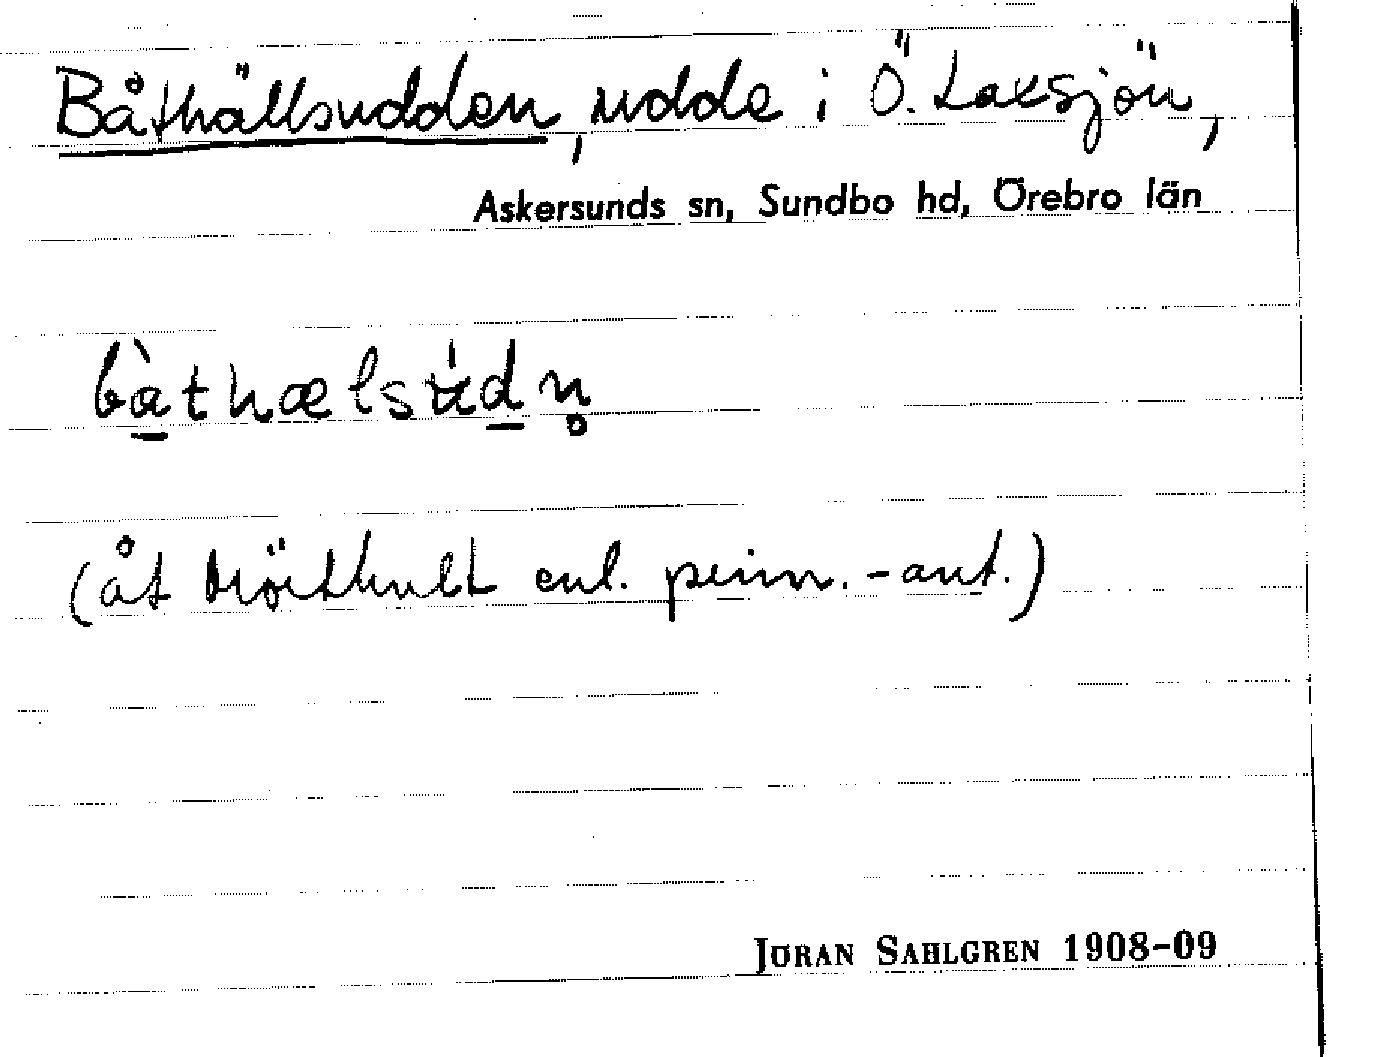 Båthällsudden, udde i Ö. Laxsjön,
Askersunds sn, Sundbo hd, Örebro län
bà̱thælsu̍ḏn̥
(åt enl. penn.-ant.)
JÖRAN SAHLGREN 1908-09